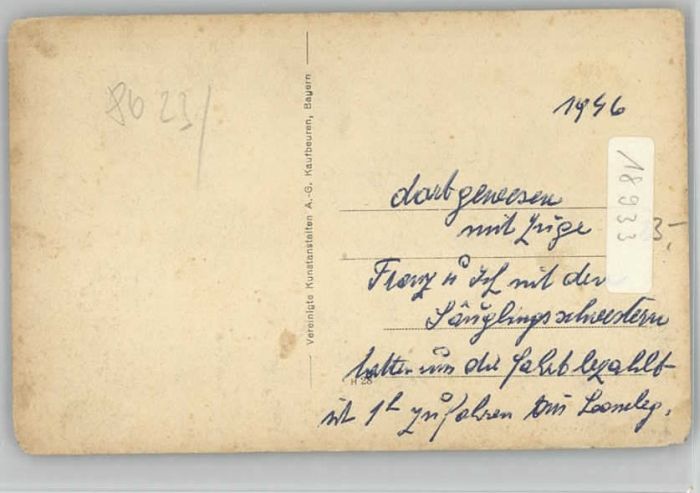 8b 23/
Vereinigte Kunstanstalten A.-G. Kaufbeuren, Bayern
1946
18933
3,-
dortgewesen
mit Züge
Franz u Ich mit den
Säuglingsschwestern
hatten uns die Fahrt bezahlt
H 28
ist 1h zu fahren